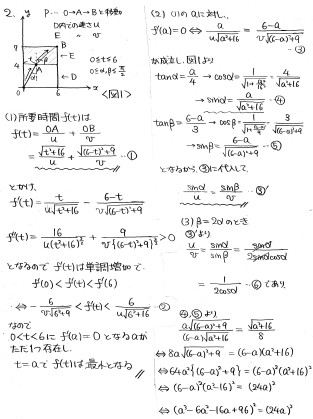 2. P… O→A→Bと移動
OAでの速さ u
E 〃 v
0≤t≤6
0≤α,β≤π/2
y
7
4
0
6
x
A
B
E
D
<図1>
(1) 所要時間 f(t)は
f(t) = OA/u + OB/v
= √(t²+16)/u + √((6-t)²+9)/v …①
とかけ、
f'(t) = t/(u√(t²+16)) - (6-t)/(v√((6-t)²+9))
f''(t) = 16/(u(t²+16)^(3/2)) + 9/(v{(6-t)²+9}^(3/2)) > 0
となるので f'(t)は単調増加で
f'(0) < f'(t) < f'(6)
⇔ -6/(v√(6²+9)) < f'(t) < 6/(u√(6²+16)) ②
なので
0<t<6に f'(a)=0となるaが
ただ1つ存在し、
t=aで f(t)は最小となる
(2) (1)のaに対し、
f'(a)=0 ⇔ a/(u√(a²+16)) = (6-a)/(v√((6-a)²+9)) …③
が成立し、図1より
tanα = a/4 → cosα = 1/√(1+a²/16) = 4/√(a²+16)
→ sinα = a/√(a²+16) …④
tanβ = (6-a)/3 → cosβ = 3/√((6-a)²+9)
→ sinβ = (6-a)/√((6-a)²+9) …⑤
となるから、③に代入して
sinα/u = sinβ/v …③'
(3) β=2αのとき
③'より
u/v = sinα/sinβ = sinα/(2sinαcosα)
= 1/(2cosα) …⑥であり
④,⑤より
a√((6-a)²+9)/((6-a)√(a²+16)) = √(a²+16)/8
⇔ 8a√((6-a)²+9) = (6-a)(a²+16)
⇔ 64a²{(6-a)²+9} = (6-a)²(a²+16)²
⇔ (6-a)²(a²-16)² = (24a)²
⇔ (a³-6a²-16a+96)² = (24a)²